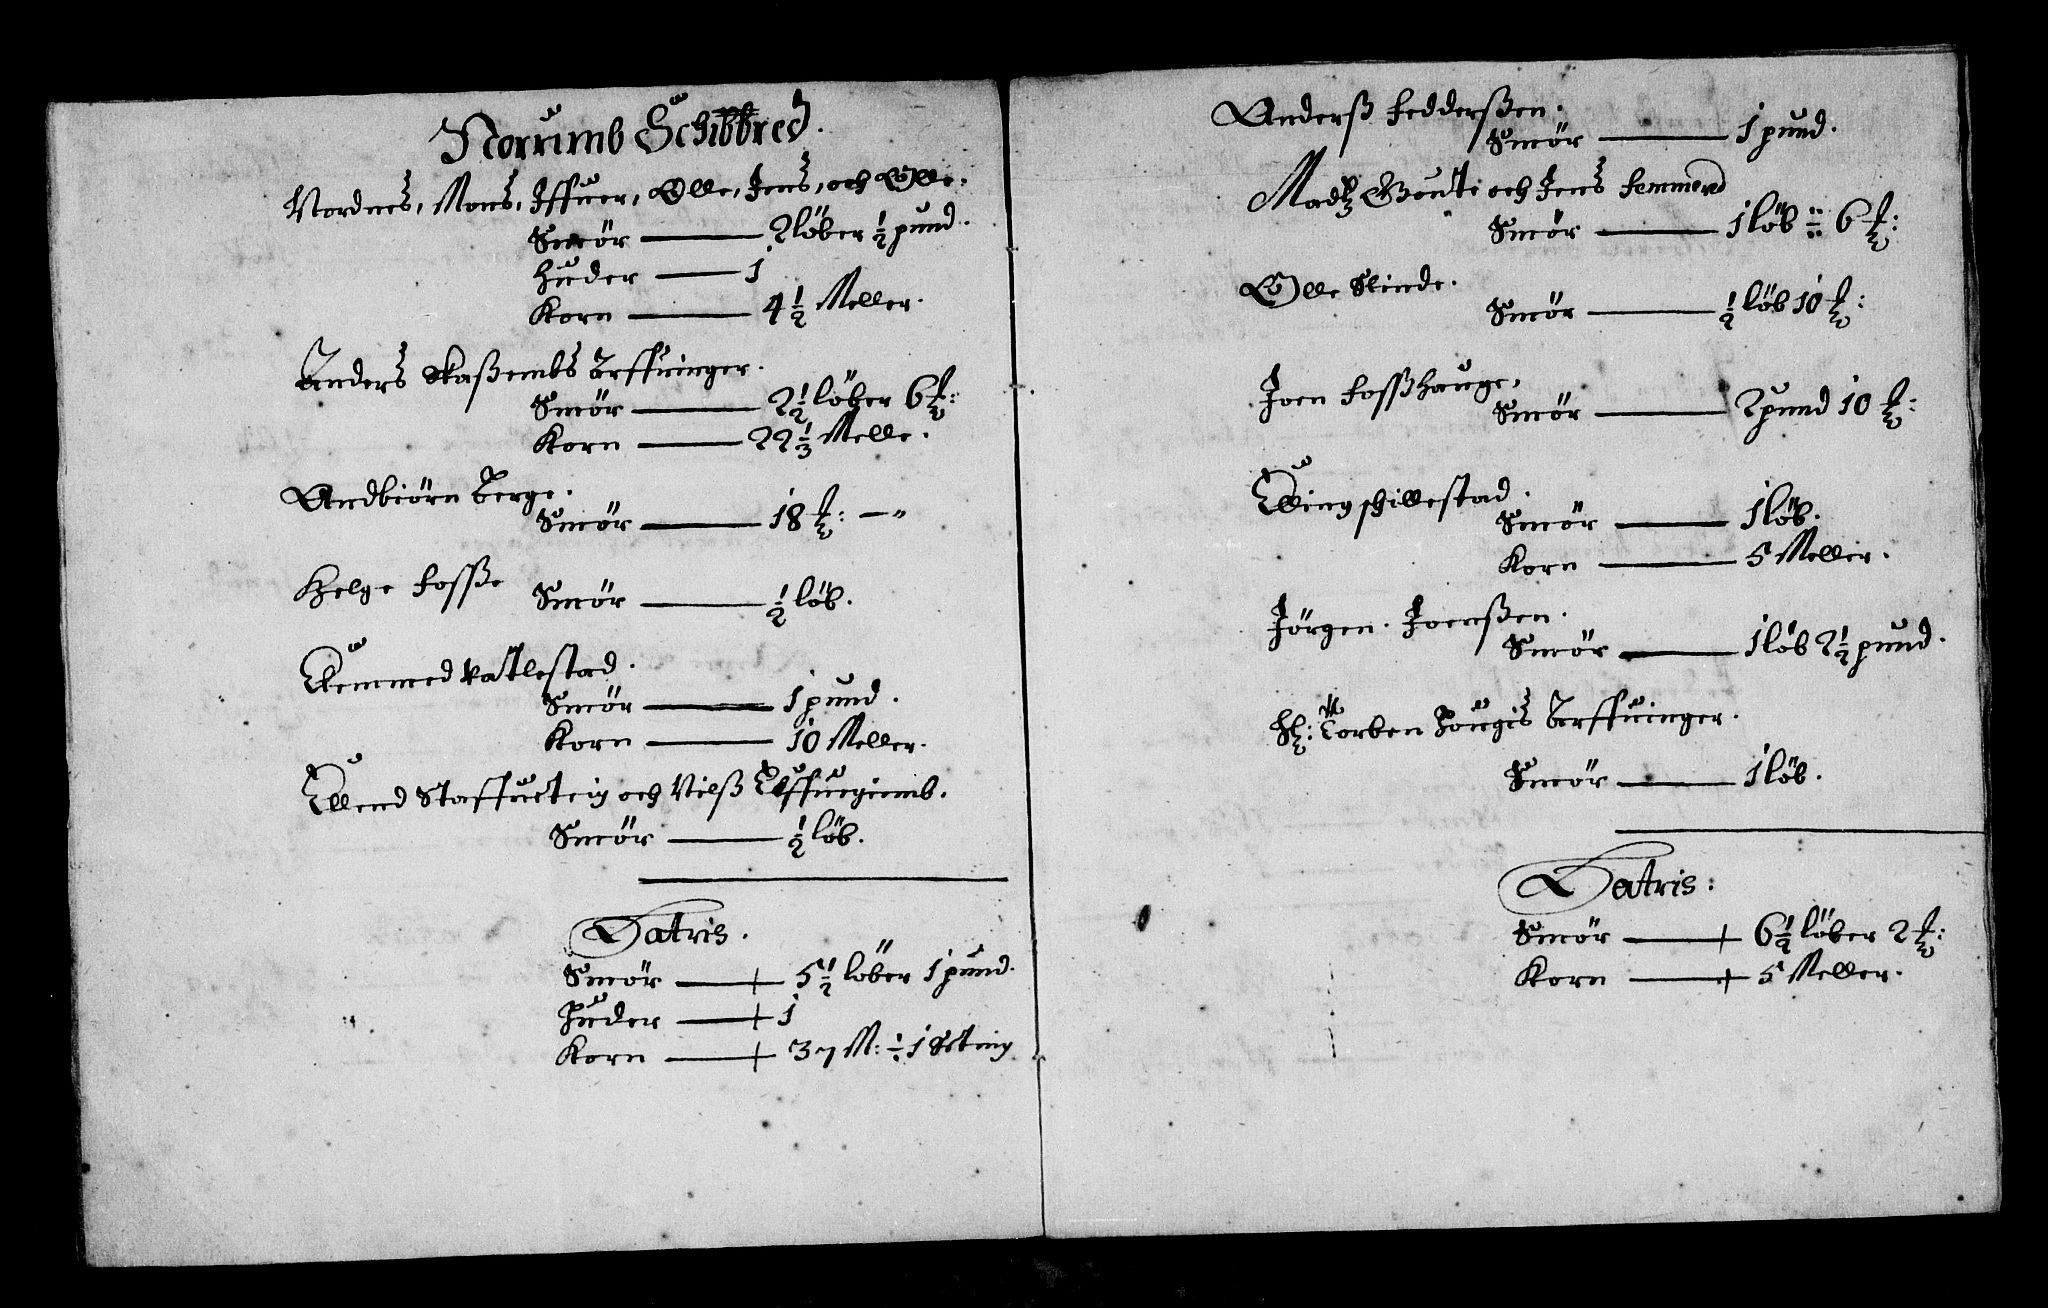 Norrumb Schibbred.
Nordnes, Mons, Iffuer, Olle, Jens, och Olle.
Smør 2 löber ½ pund.
Huder 1
Korn 4½ Meller.
Anders Kaßembs Arffuinger.
Smör 2½ löber 6 ℔:
Korn 22⅓ Melle.
Andbiörn Berge.
Smör 18 ℔: —"
Helge Fosße
Smör ½ löb.
Remmed Katlestad.
Smör 1 pund.
Korn 10 Meller.
Ellend Staffucteig och Nilß
Smör ½ löb.
Latris.
Smör 5½ löber 1 pund.
Huder 1
Korn 37 M: ÷ 1 Setting
Anderß Feddersßen.
Smör 1 pund.
Madtz Goutte och Jens Femmered
Smör 1 löb ÷ 6 ℔:
Olle Slinde.
Smör ½ löb 10 ℔:
Joen Fosßhauge,
Smör 2 pund 10 ℔:
Elling Schillestad.
Smör 1 löb.
Korn 5 Meller.
Jörgen Joenßen.
Smör 1 löb 2½ pund.
Hr: Torben Hougis Arffuinger.
Smör 1 löb.
Latris:
Smör 6½ löber 2 ℔:
Korn 5 Meller.